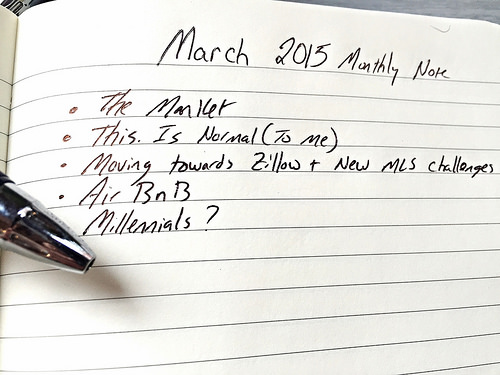 March 2015 Monthly Note
• The Market
• This. Is Normal (To me)
• Moving towards Zillow + New MLS challenges
• Air BnB
Millennials ?